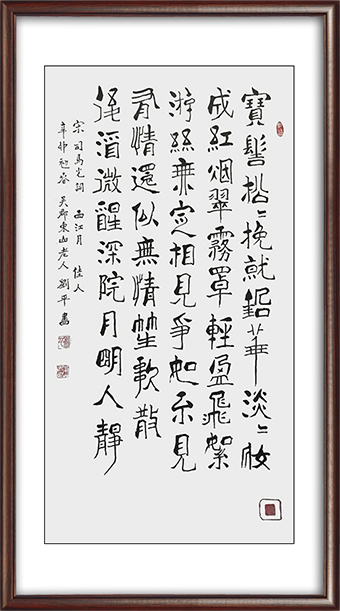 寶髻松〻挽就鉛華淡〻妝
成紅烟翠霧罩輕盈飛絮
游絲無定相見爭如不見
有情還似無情笙歌散
後酒微醒深院月明人靜
宋 司馬光詞 西江月 佳人
辛卯初春 天都東山老人 劉平書